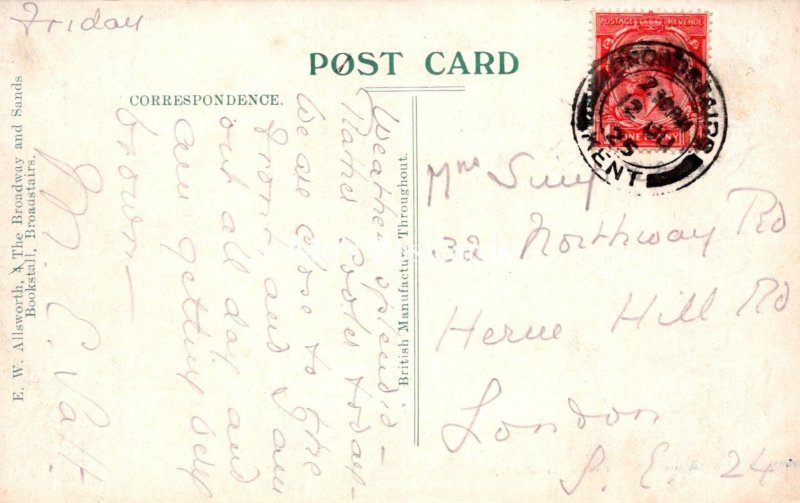 Friday
POST CARD
CORRESPONDENCE.
POSTAGE REVENUE
ONE PENNY
BROADSTAIRS
2.30 PM
12
25
KENT
Weather splendid –
Rather cooler today –
We are close to the
front, and I am
out all day and
am getting very
brown –
M. E.
British Manufacture Throughout.
E. W. Allsworth, 4 The Broadway and Sands
Bookstall, Broadstairs.
Mrs
32 Northway Rd
Herne Hill Rd
London
S. E. 24